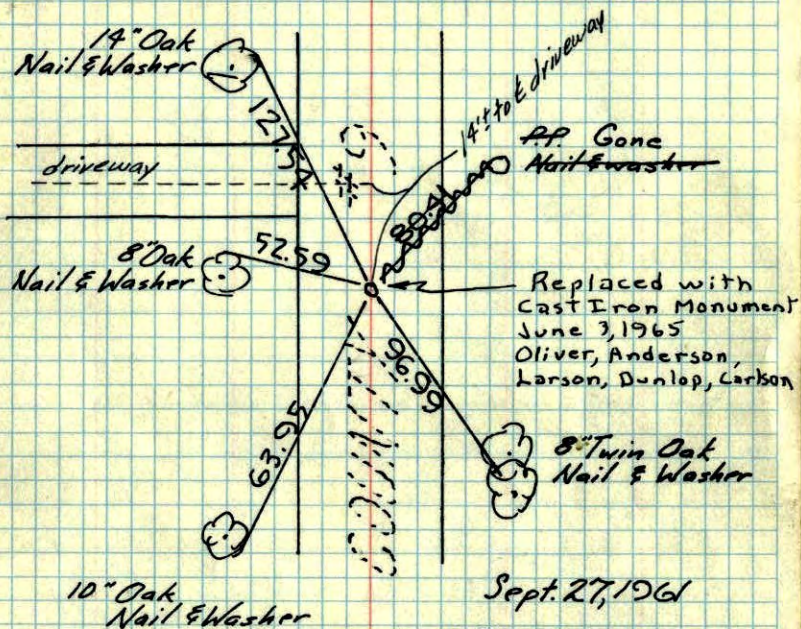 14" Oak
Nail & Washer
127.54
14'± to ℄ driveway
P.P. Gone
Nail & washer
driveway
80.41
8" Oak
Nail & Washer
52.59
Replaced with
Cast Iron Monument
June 3, 1965
Oliver, Anderson,
Larson, Dunlop, Carlson
96.99
63.95
8" Twin Oak
Nail & Washer
10" Oak
Nail & Washer
Sept. 27, 1961